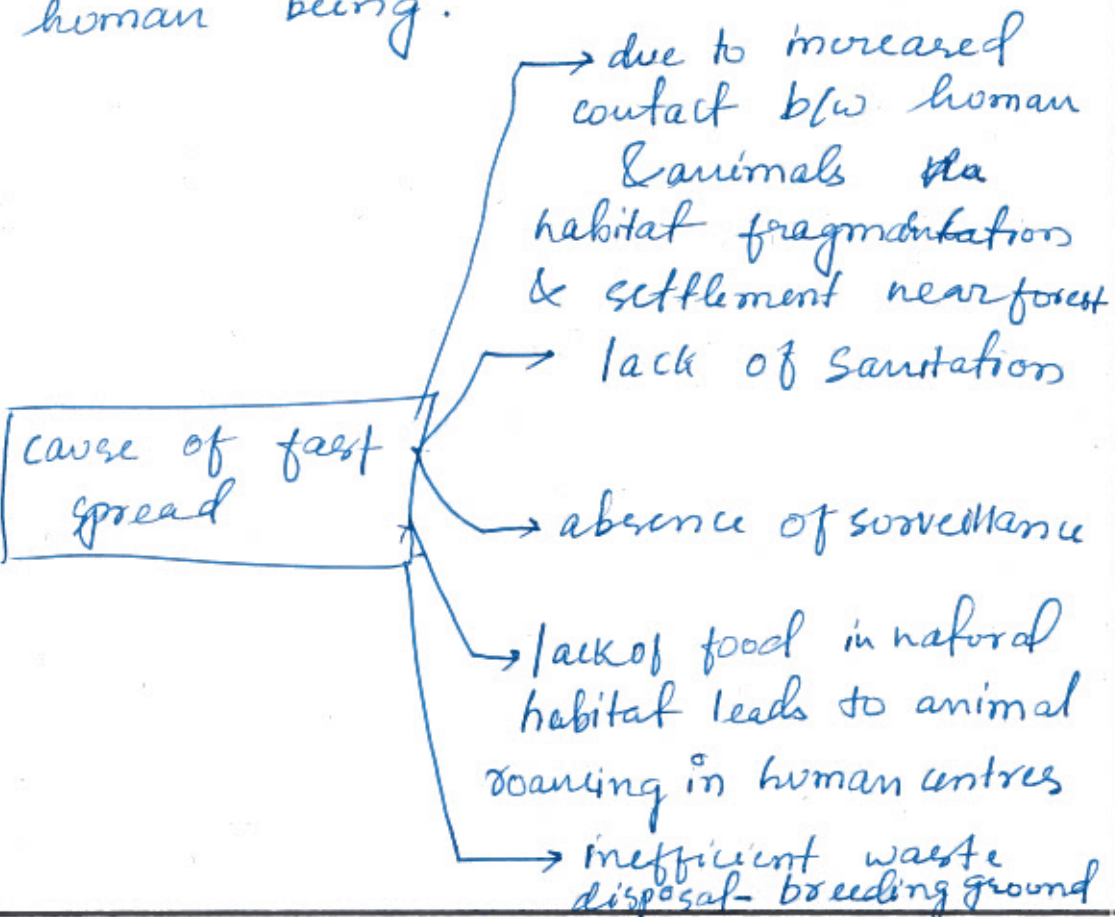 human being.
→ due to increased
contact b/w human
& animals
habitat fragmentation
& settlement near forest
→ lack of sanitation
cause of fast
spread
→ absence of surveillance
→ lack of food in natural
habitat leads to animal
roaming in human centres
→ inefficient waste
disposal - breeding ground